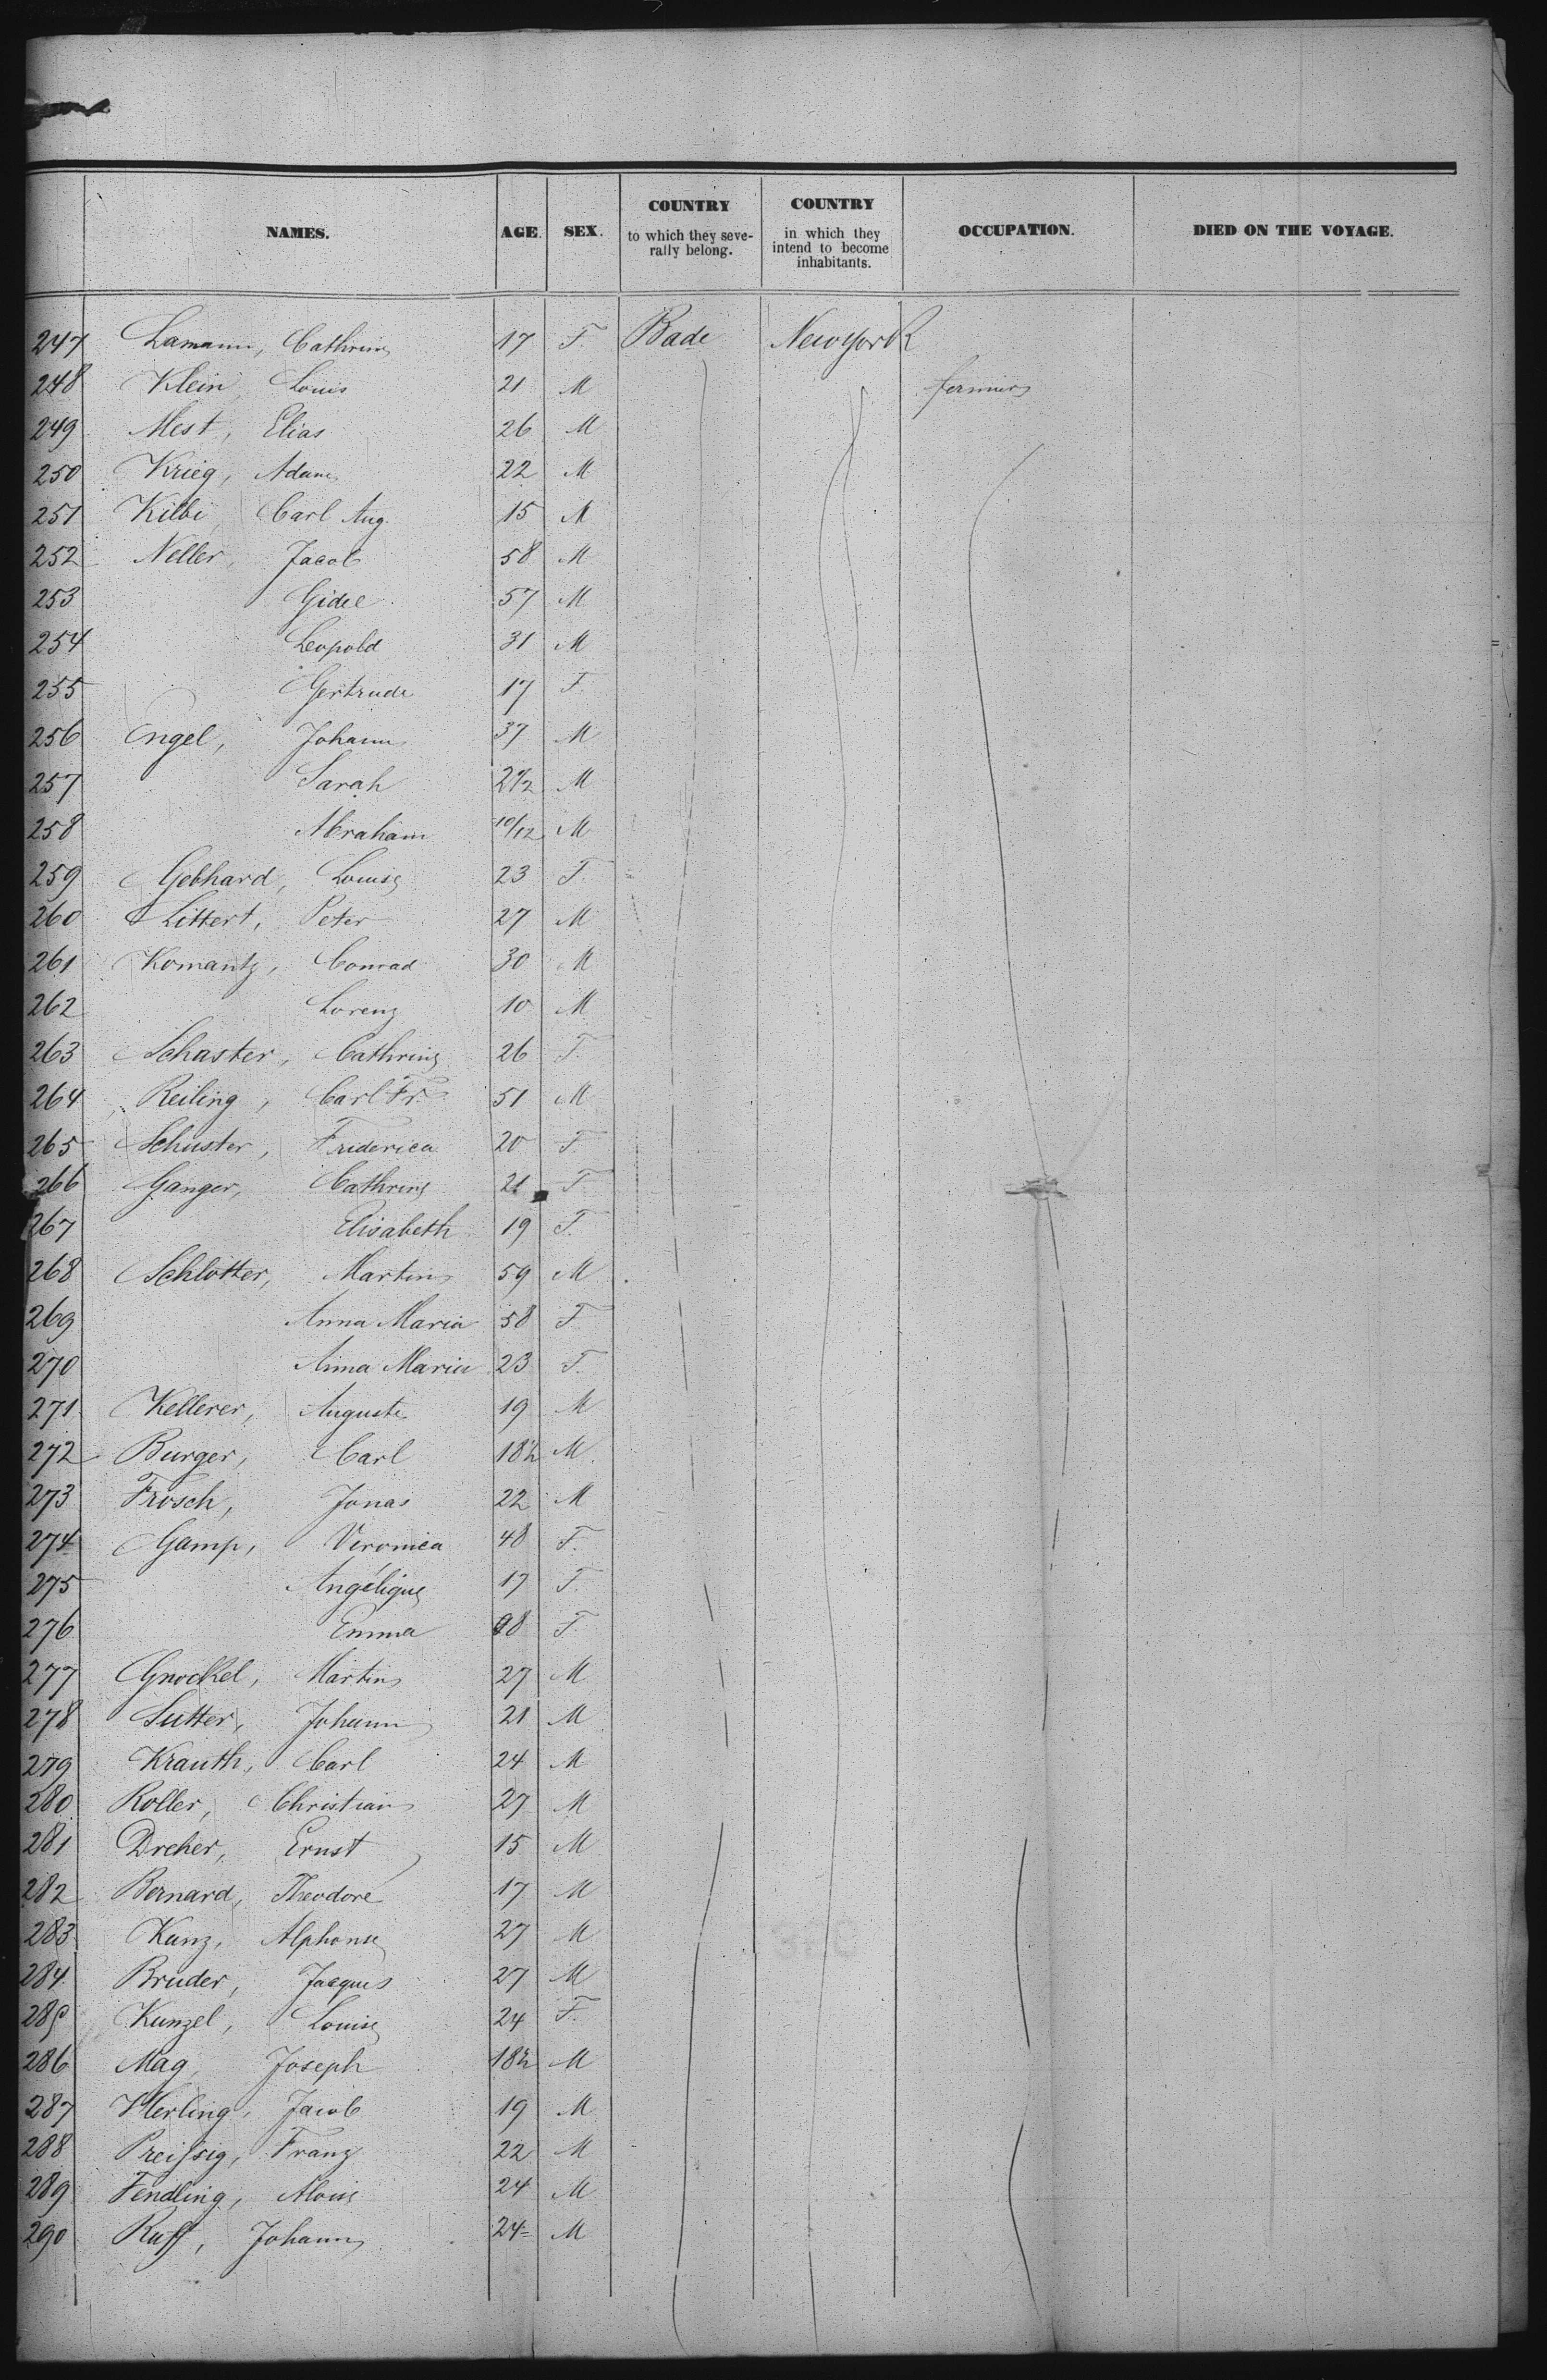 NAMES. AGE. SEX. COUNTRY to which they severally belong. COUNTRY in which they intend to become inhabitants. OCCUPATION. DIED ON THE VOYAGE.
247 Lamann, Cathrine 17 F. Bade New York
248 Klein Louis 21 M fermier
249 Mest, Elias 26 M
250 Krieg, Adam 22 M
251 Kilbi Carl Aug. 15 M
252 Neller, Jacob 58 M
253 Gidel 57 M
254 Leopold 31 M
255 Gertrude 17 F.
256 Engel, Johann 37 M
257 Sarah 2 1/2 M
258 Abraham 10/12 M
259 Gebhard, Louise 23 F.
260 Littert, Peter 27 M
261 Komantz, Conrad 30 M
262 Lorenz 10 M
263 Schaster, Cathrine 26 F.
264 Reiling, Carl Fr. 51 M
265 Schuster, Friderica 20 F.
266 Ganger, Cathrine 21 F
267 Elisabeth 19 F.
268 Schlotter, Martin 59 M
269 Anna Maria 58 F
270 Anna Maria 23 F.
271 Kellerer, Auguste 19 M
272 Burger, Carl 18 1/2 M.
273 Frosch, Jonas 22 M
274 Gamp, Veronica 48 F.
275 Angélique 17 F.
276 Emma 8 F.
277 Gnockel, Martin 27 M
278 Sutter, Johann 21 M
279 Krauth, Carl 24 M
280 Roller, Christian 27 M
281 Dreher, Ernst 15 M
282 Bernard, Theodore 17 M
283 Kunz, Alphonse 27 M
284 Bruder, Jacques 27 M
285 Kunzel, Louise 24 F.
286 Mag, Joseph 18 1/2 M
287 Herling, Jacob 19 M
288 Preissig, Franz 22 M
289 Fendling, Alois 24 M
290 Ruff, Johann 24 M